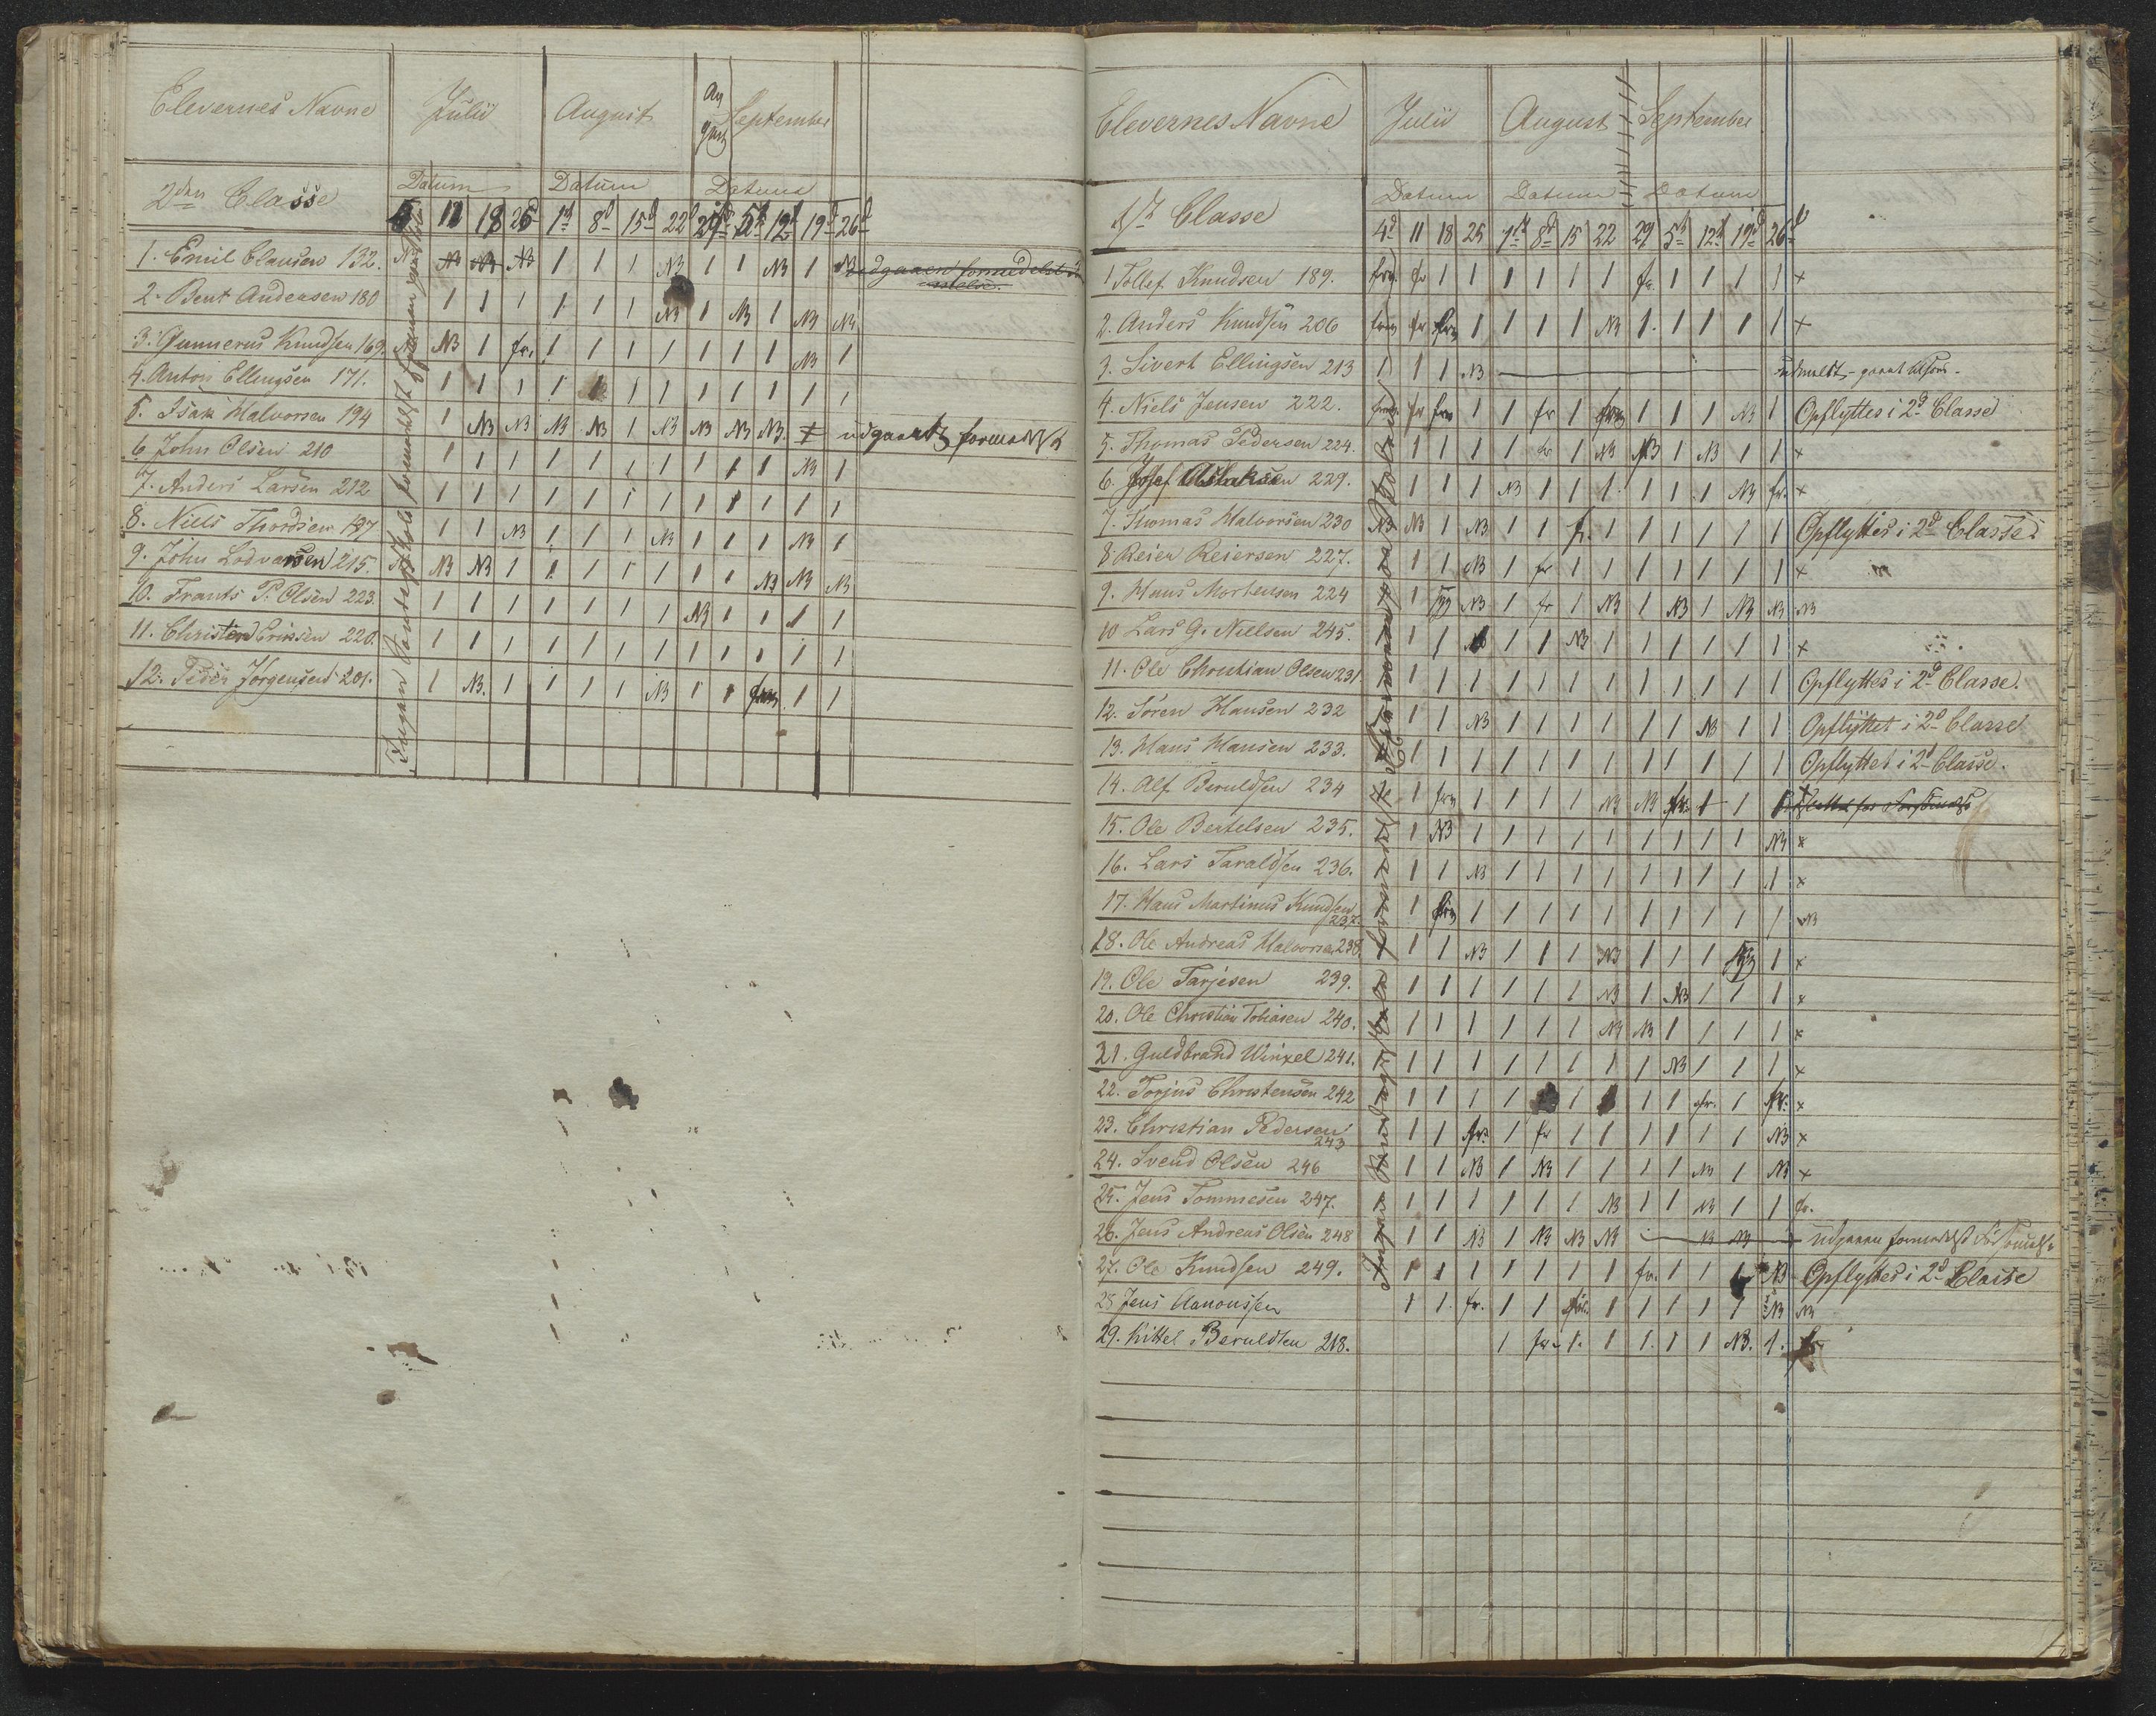 Elevernes Navne Julii August August September
2den Classe Datum Datum Datum
5 11 18 25d 1st 8d 15d 22d 29d 5d 12d 19d 26d
1. Emil Clausen 132. NB NB NB NB 1 1 1 NB 1 1 NB 1 NB udgaaen formedelst
2. Bent Andersen 180 1 1 1 1 1 1 NB 1 NB 1 NB NB
3. Gunnerus Knudsen 169. NB NB 1 fr. 1 1 1 1 1 1 1 NB 1
4. Anton Ellingsen 171. 1 1 1 1 1 1 1 1 1 1 1
5. Isak Halvorsen 194 1 NB NB NB NB 1 NB NB NB NB udgaaet formedelst
6 John Olsen 210 1 1 1 1 1 1 1 1 1 1 NB 1
7. Anders Larsen 212 1 1 1 1 1 1 1 1 1 1 1 1
8. Niels Thordsen 197 1 1 NB 1 1 1 NB 1 1 1 NB 1
9. John Lodvarsen 215. NB NB 1 1 1 1 1 1 1 NB NB NB
10. Frants P. Olsen 223. 1 1 1 1 1 1 1 NB 1 1 1 1
11. Christen Eriksen 220. 1 1 1 1 1 1 1 1 1 1 1 1
12. Peder Jörgensen 201. 1 NB. 1 1 1 1 NB 1 1 frm 1 1
Ingen Søndagsskole formedelst
Elevernes Navne Julii August September
1st Classe Datum Datum Datum
4d 11 18 25 1st 8d 15 22 29 5d 12d 19d 26d
1 Tollef Knudsen 189. frm fr 1 1 1 1 1 1 fr. 1 1 1 1 x
2. Anders Knudsen 206 frm fr frm 1 1 1 1 NB 1. 1 1 1 1 x
3. Sivert Ellingsen 213 1 1 1 NB udmeldt, - gaaet tilsøes.
4. Niels Jensen 222. frm fr frm 1 1 fr 1 frm 1 1 1 NB 1 Opflyttes i 2d Classe
5. Thomas Pedersen 224. 1 1 1 1 fr 1 NB NB 1 NB 1 1 x
6. Josef Aslaksen 229. 1 1 1 NB 1 1 1 1 1 1 NB fr. x
7. Thomas Halvorsen 230 NB NB 1 NB 1 1 fr. 1 1 1 1 1 1 Opflyttes i 2d Classe
8 Reier Reiersen 227. 1 1 NB 1 fr 1 1 1 1 1 1 1 x
9. Hans Mortensen 224 1 syg NB 1 fr 1 NB 1 NB 1 NB NB NB
10 Lars G. Nielsen 245. 1 1 1 1 NB 1 1 1 1 1 1 x
11. Ole Christian Olsen 231 1 1 1 1 1 1 1 1 1 1 1 1 Opflyttes i 2d Classe.
12. Sören Hansen 232 1 1 NB 1 1 1 1 1 1 NB 1 1 Opflyttet i 2d Classe
13. Hans Hansen 233. 1 1 1 1 1 1 1 1 1 1 1 1 Opflyttet i 2d Classe.
14. Alf Beruldsen 234 1 frm 1 1 1 1 NB NB fr. 1 1
15. Ole Bertelsen 235. 1 NB 1 1 1 1 1 1 1 1 1 NB x
16. Lars Taraldsen 236. 1 1 NB 1 1 1 1 1 1 1 1 1 x
17. Hans Martinus Knudsen 237. 1 frm 1 1 1 1 1 1 1 1 1 1 NB
18. Ole Andreas Halvorsen 238. 1 1 NB 1 1 1 NB 1 1 1 syg 1 x
19. Ole Tarjesen 239. 1 1 1 1 1 1 NB 1 NB 1 1 1 x
20. Ole Christian Tobiasen 240. 1 1 1 1 1 1 NB NB 1 1 1 1 x
21. Guldbrand Winxel 241. 1 1 1 1 1 1 1 1 NB 1 1 1 x
22. Torjus Christensen 242 1 1 1 1 1 1 1 fr. 1 fr. x
23. Christian Pedersen 243 1 1 fr. 1 fr 1 1 1 1 1 1 NB x
24. Svend Olsen 246 1 1 NB 1 NB 1 1 1 1 NB 1 NB x
25. Jens Tommesen 247. 1 1 1 1 1 1 NB 1 1 NB 1 1 fr.
26. Jens Andreas Olsen 248 1 1 NB 1 NB NB NB NB NB udgaaen formedelst Forsømmelse
27. Ole Knudsen 249. 1 1 1 1 1 1 1 fr. 1 1 1 NB Opflyttes i 2d Classe
28 Jens Aanonsen 1 1. fr. 1 1 1 1 1 1 1 NB NB
29. Kittel Beruldsen 218. 1 fr. 1. 1 1. 1 1 NB. 1. fr.
Ingen Søndagsskole formedelst